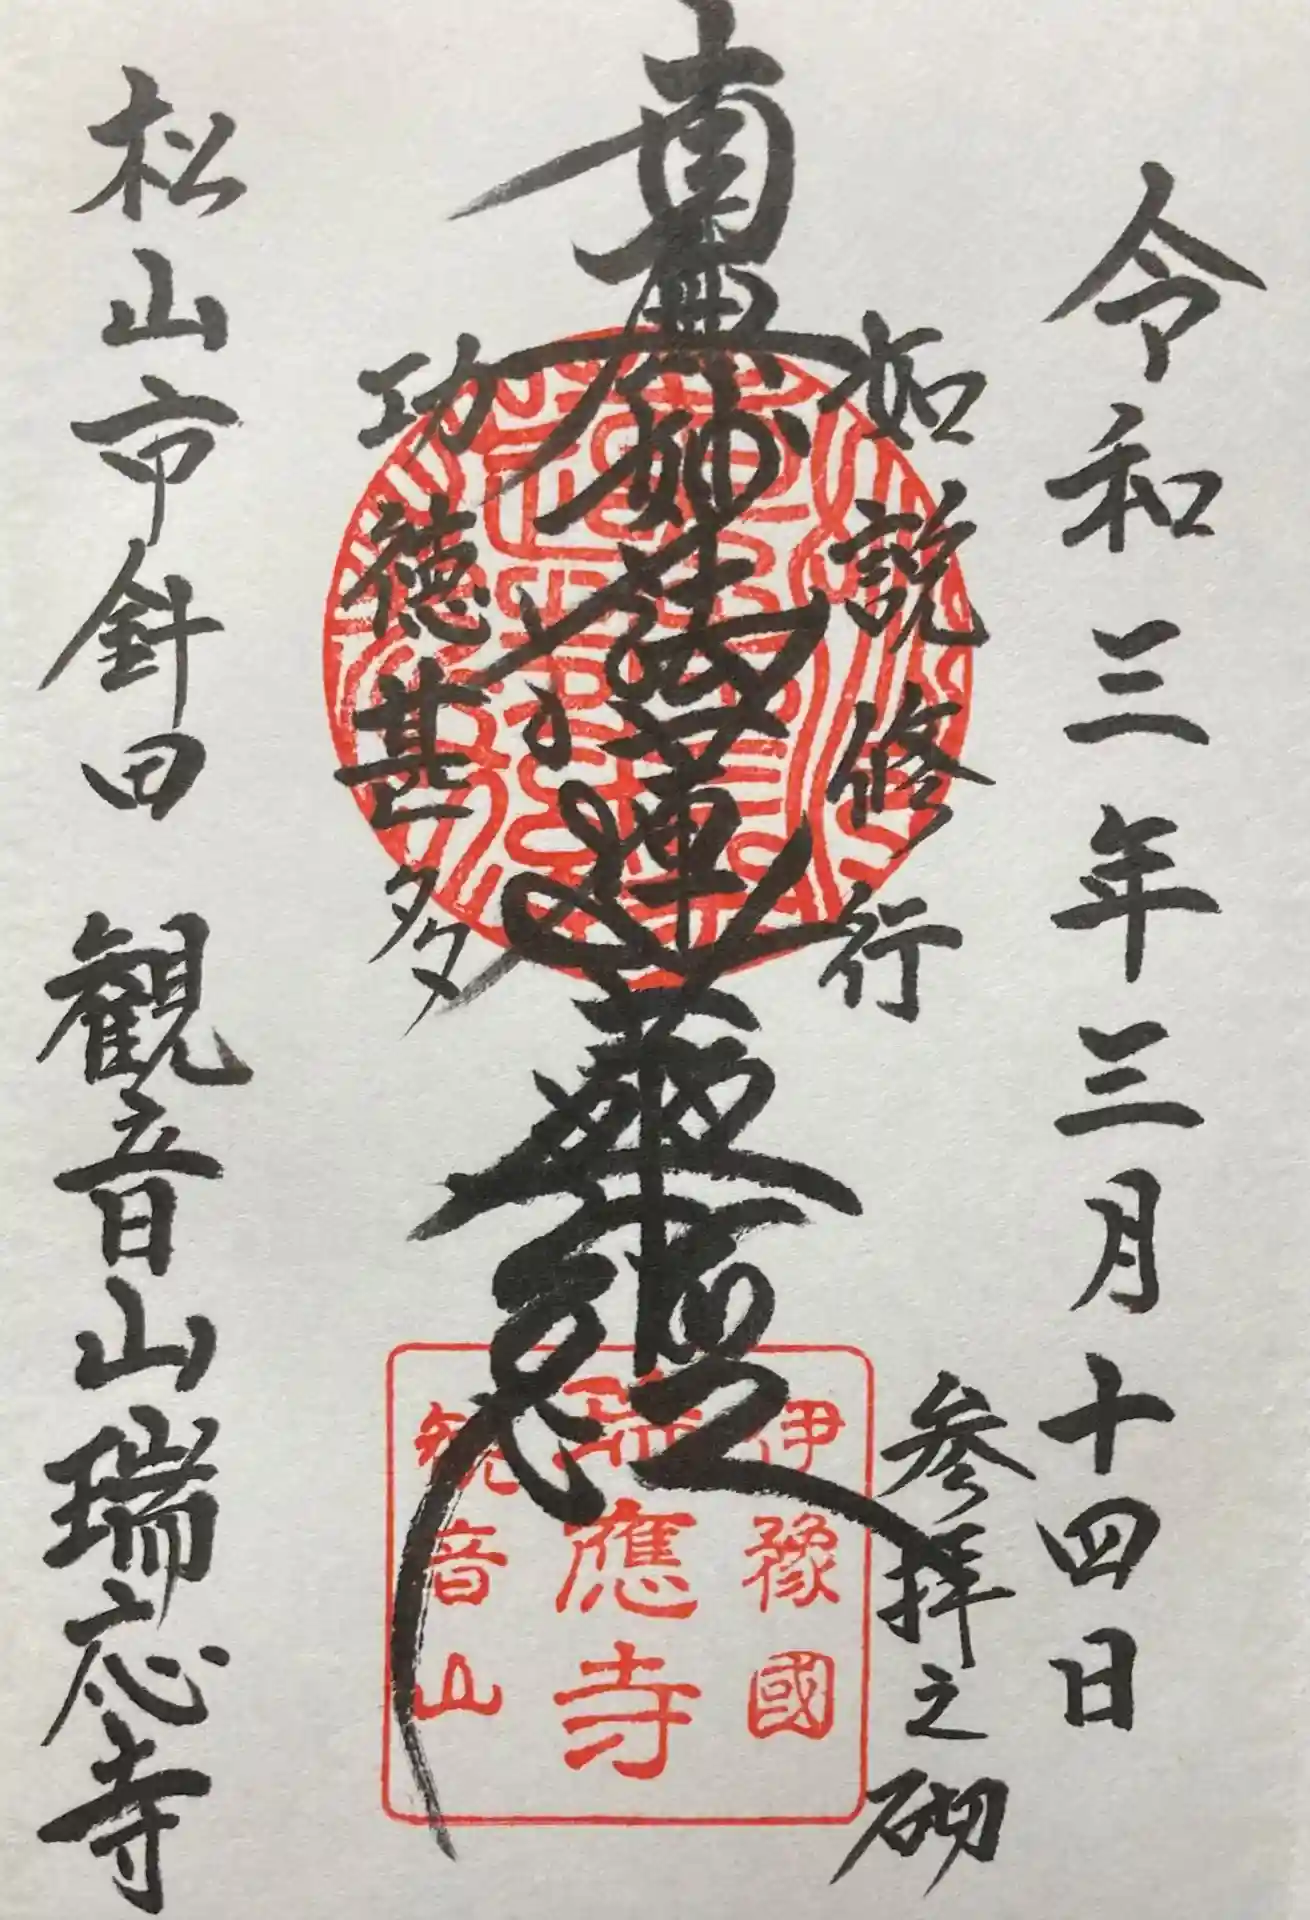 令和三年三月十四日
参拝之砌
如説修行
南無妙法蓮華経
功徳甚多
伊豫國
瑞應寺
観音山
松山市針田 観音山瑞応寺